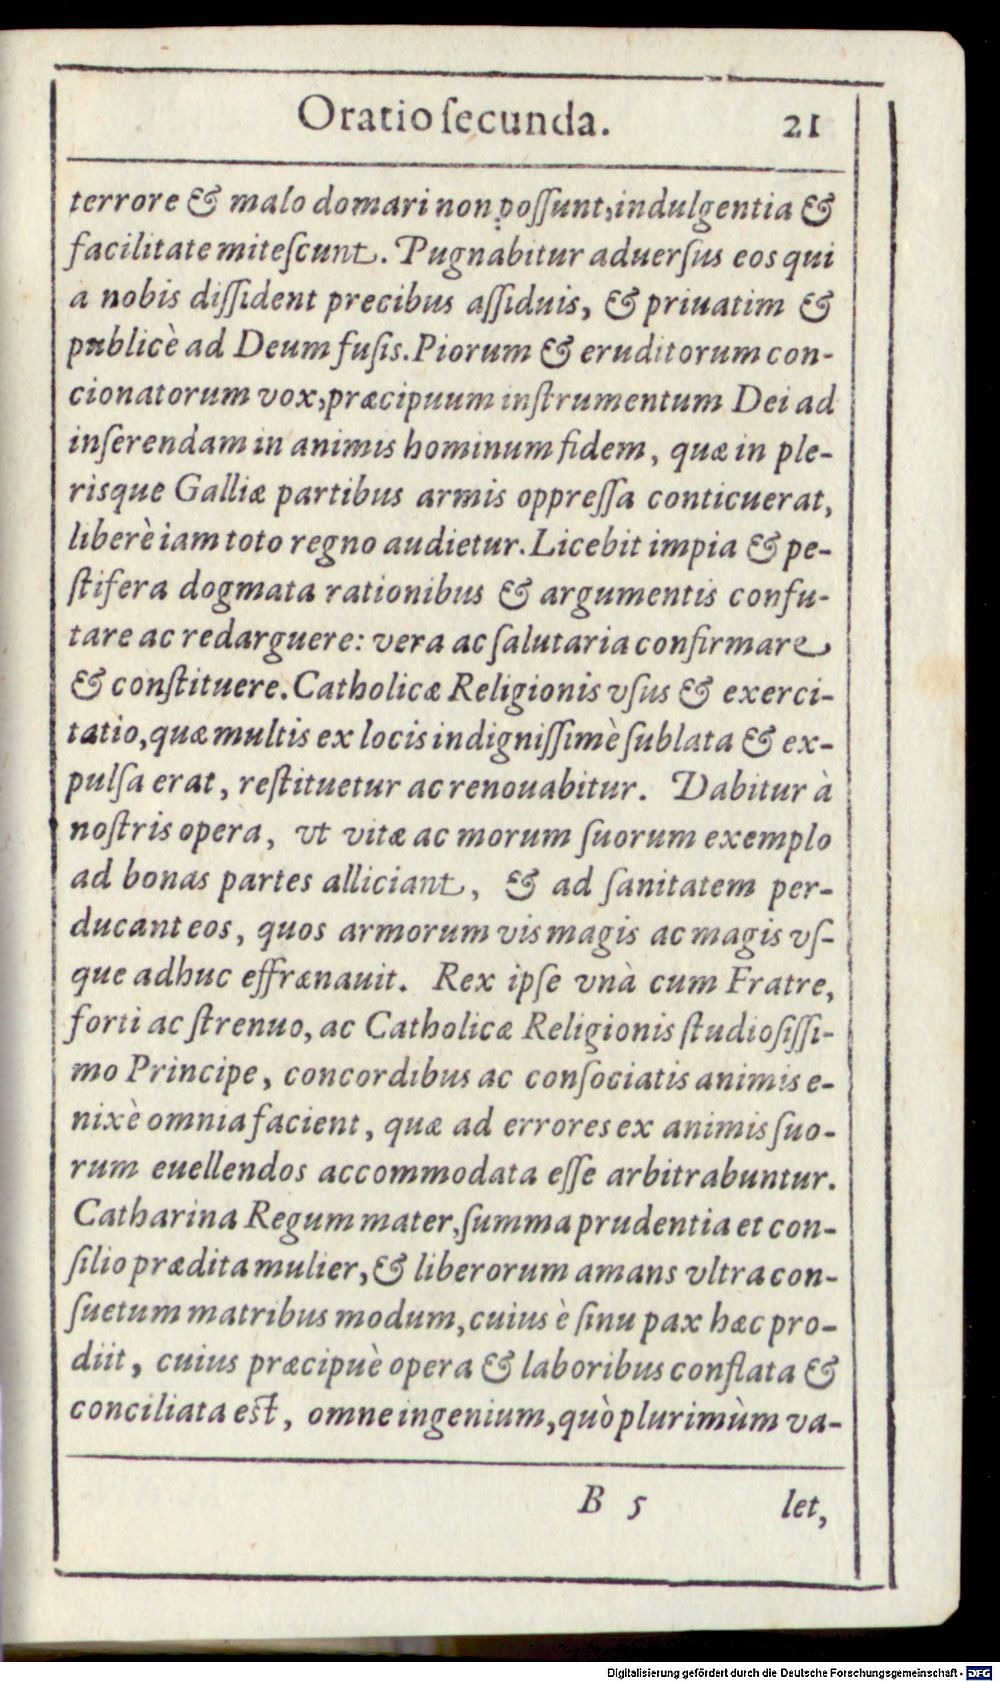 Oratio ſecunda. 21
terrore & malo domari non poſſunt, indulgentia &
facilitate miteſcunt. Pugnabitur aduerſus eos qui
a nobis diſſident precibus aſſiduis, & priuatim &
publicè ad Deum fuſis. Piorum & eruditorum con-
cionatorum vox, præcipuum inſtrumentum Dei ad
inſerendam in animis hominum fidem, quæ in ple-
risque Galliæ partibus armis oppreſſa conticuerat,
liberè iam toto regno audietur. Licebit impia & pe-
ſtifera dogmata rationibus & argumentis confu-
tare ac redarguere: vera ac ſalutaria confirmare
& conſtituere. Catholicæ Religionis vſus & exerci-
tatio, quæ multis ex locis indigniſſimè ſublata & ex-
pulſa erat, reſtituetur ac renouabitur. Dabitur à
noſtris opera, vt vitæ ac morum ſuorum exemplo
ad bonas partes alliciant, & ad ſanitatem per-
ducant eos, quos armorum vis magis ac magis vſ-
que adhuc effrænauit. Rex ipſe vnà cum Fratre,
forti ac ſtrenuo, ac Catholicæ Religionis ſtudioſiſſi-
mo Principe, concordibus ac conſociatis animis e-
nixè omnia facient, quæ ad errores ex animis ſuo-
rum euellendos accommodata eſſe arbitrabuntur.
Catharina Regum mater, ſumma prudentia et con-
ſilio prædita mulier, & liberorum amans vltra con-
ſuetum matribus modum, cuius è ſinu pax hæc pro-
diit, cuius præcipuè opera & laboribus conflata &
conciliata eſt, omne ingenium, quò plurimùm va-
B 5 let,
Digitalisierung gefördert durch die Deutsche Forschungsgemeinschaft - DFG